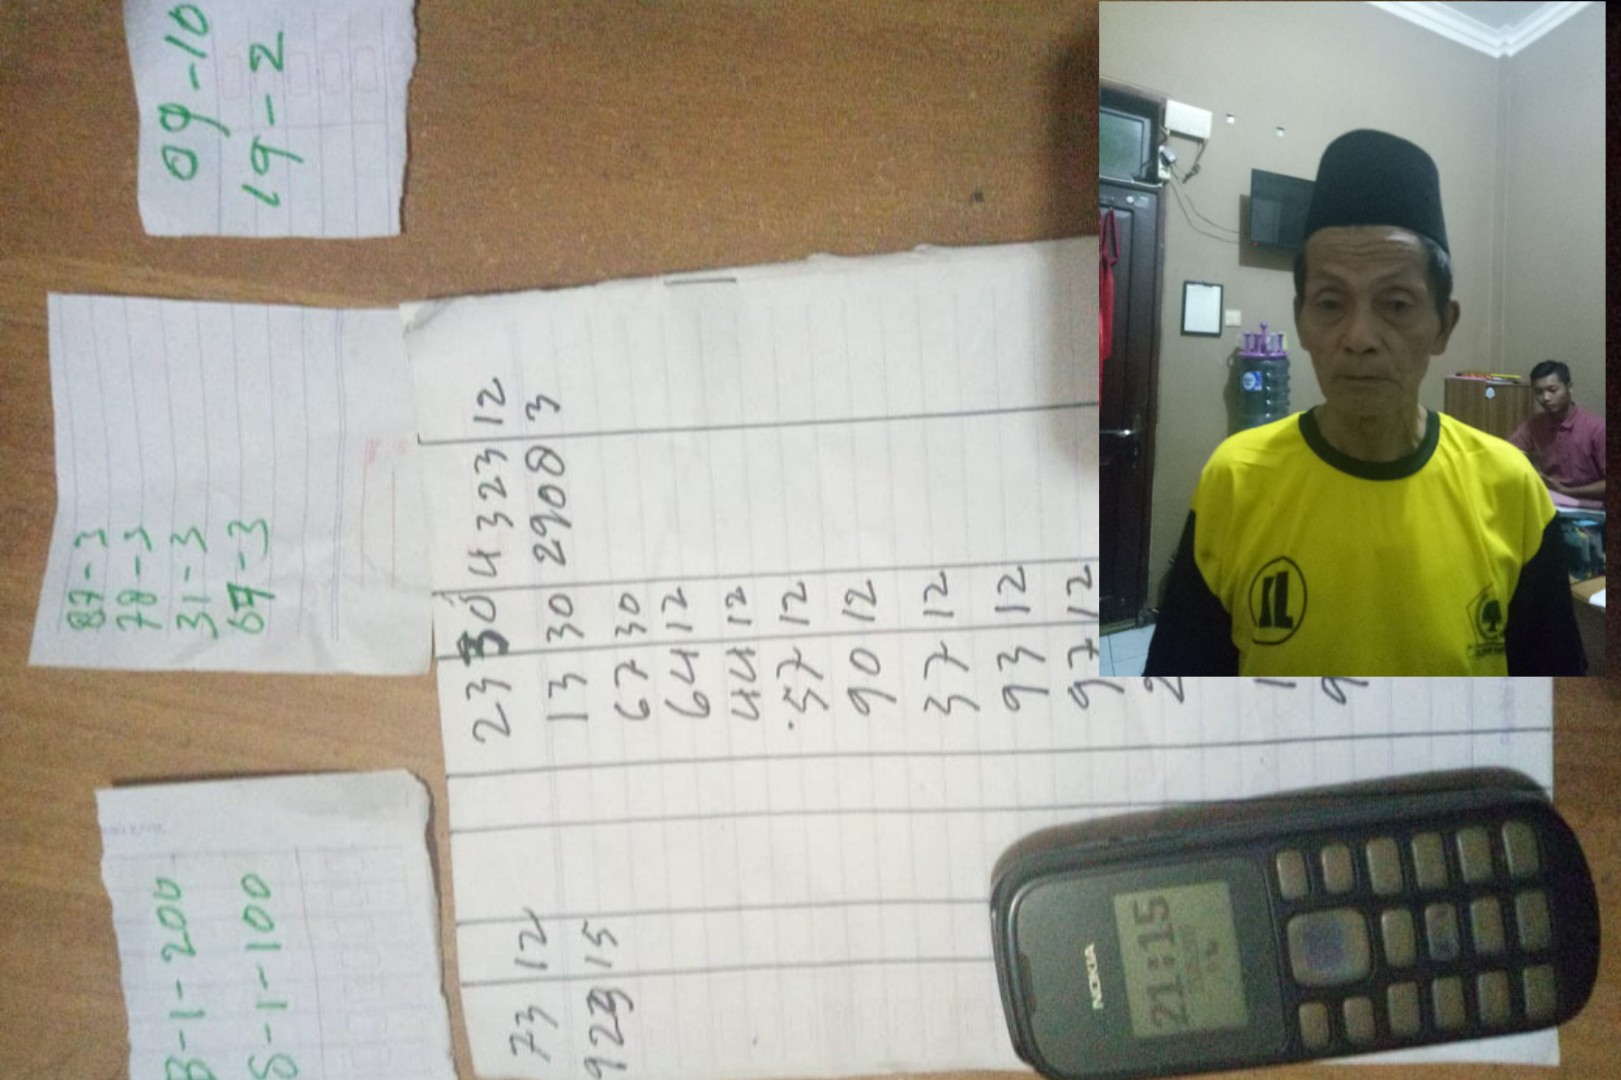 09-10
19-2
87-3
78-3
31-3
67-3
B-1-200
S-1-100
23 30 4323 12
13 30 2908 3
67 30
64 12
44 12
57 12
90 12
37 12
93 12
97 12
73 12
923 15
NOKIA
21:15